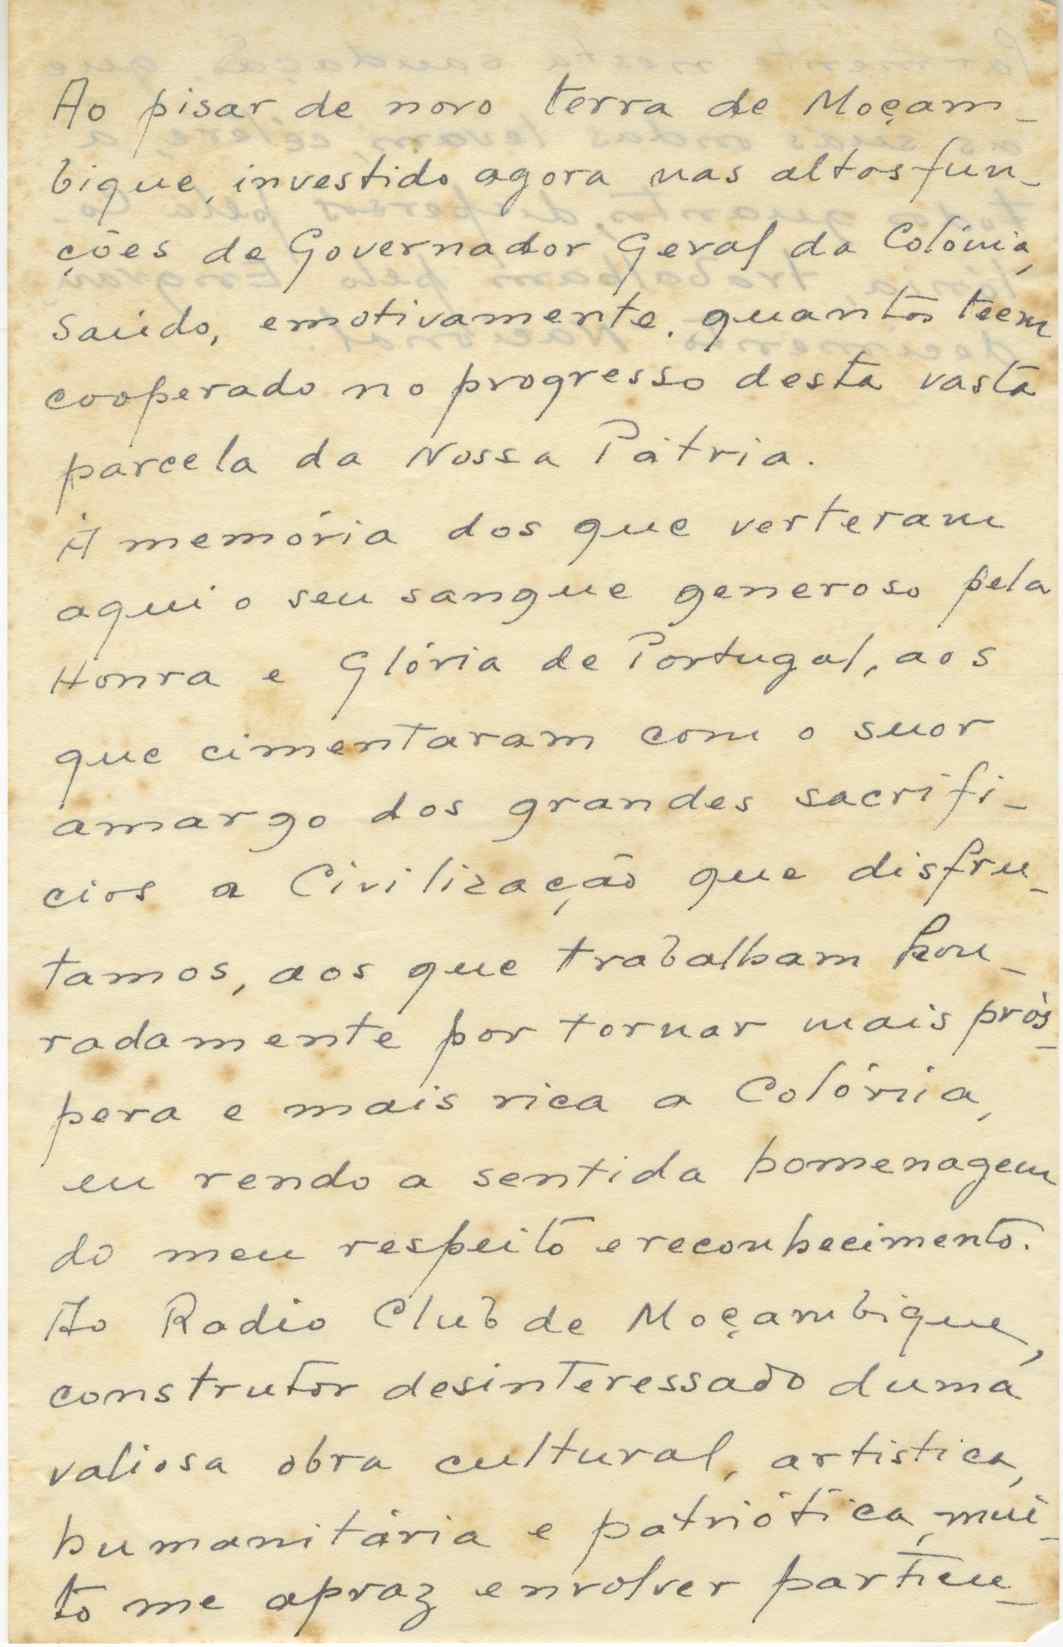 Ao pisar de novo terra de Moçam-
bique, investido agora nas altas fun-
ções de Governador Geral da Colónia,
saúdo, emotivamente, quantos teem
cooperado no progresso desta vasta
parcela da Nossa Pátria.
Á memória dos que verteram
aqui o seu sangue generoso pela
Honra e Glória de Portugal, aos
que cimentaram com o suor
amargo dos grandes sacrifi-
cios a Civilização que disfru-
tamos, aos que trabalham hon-
radamente por tornar mais prós-
pera e mais rica a Colónia,
eu rendo a sentida homenagem
do meu respeito e reconhecimento.
Ao Radio Club de Moçambique,
construtor desinteressado duma
valiosa obra cultural, artistica,
humanitária e patriótica, mui-
to me apraz envolver particu-